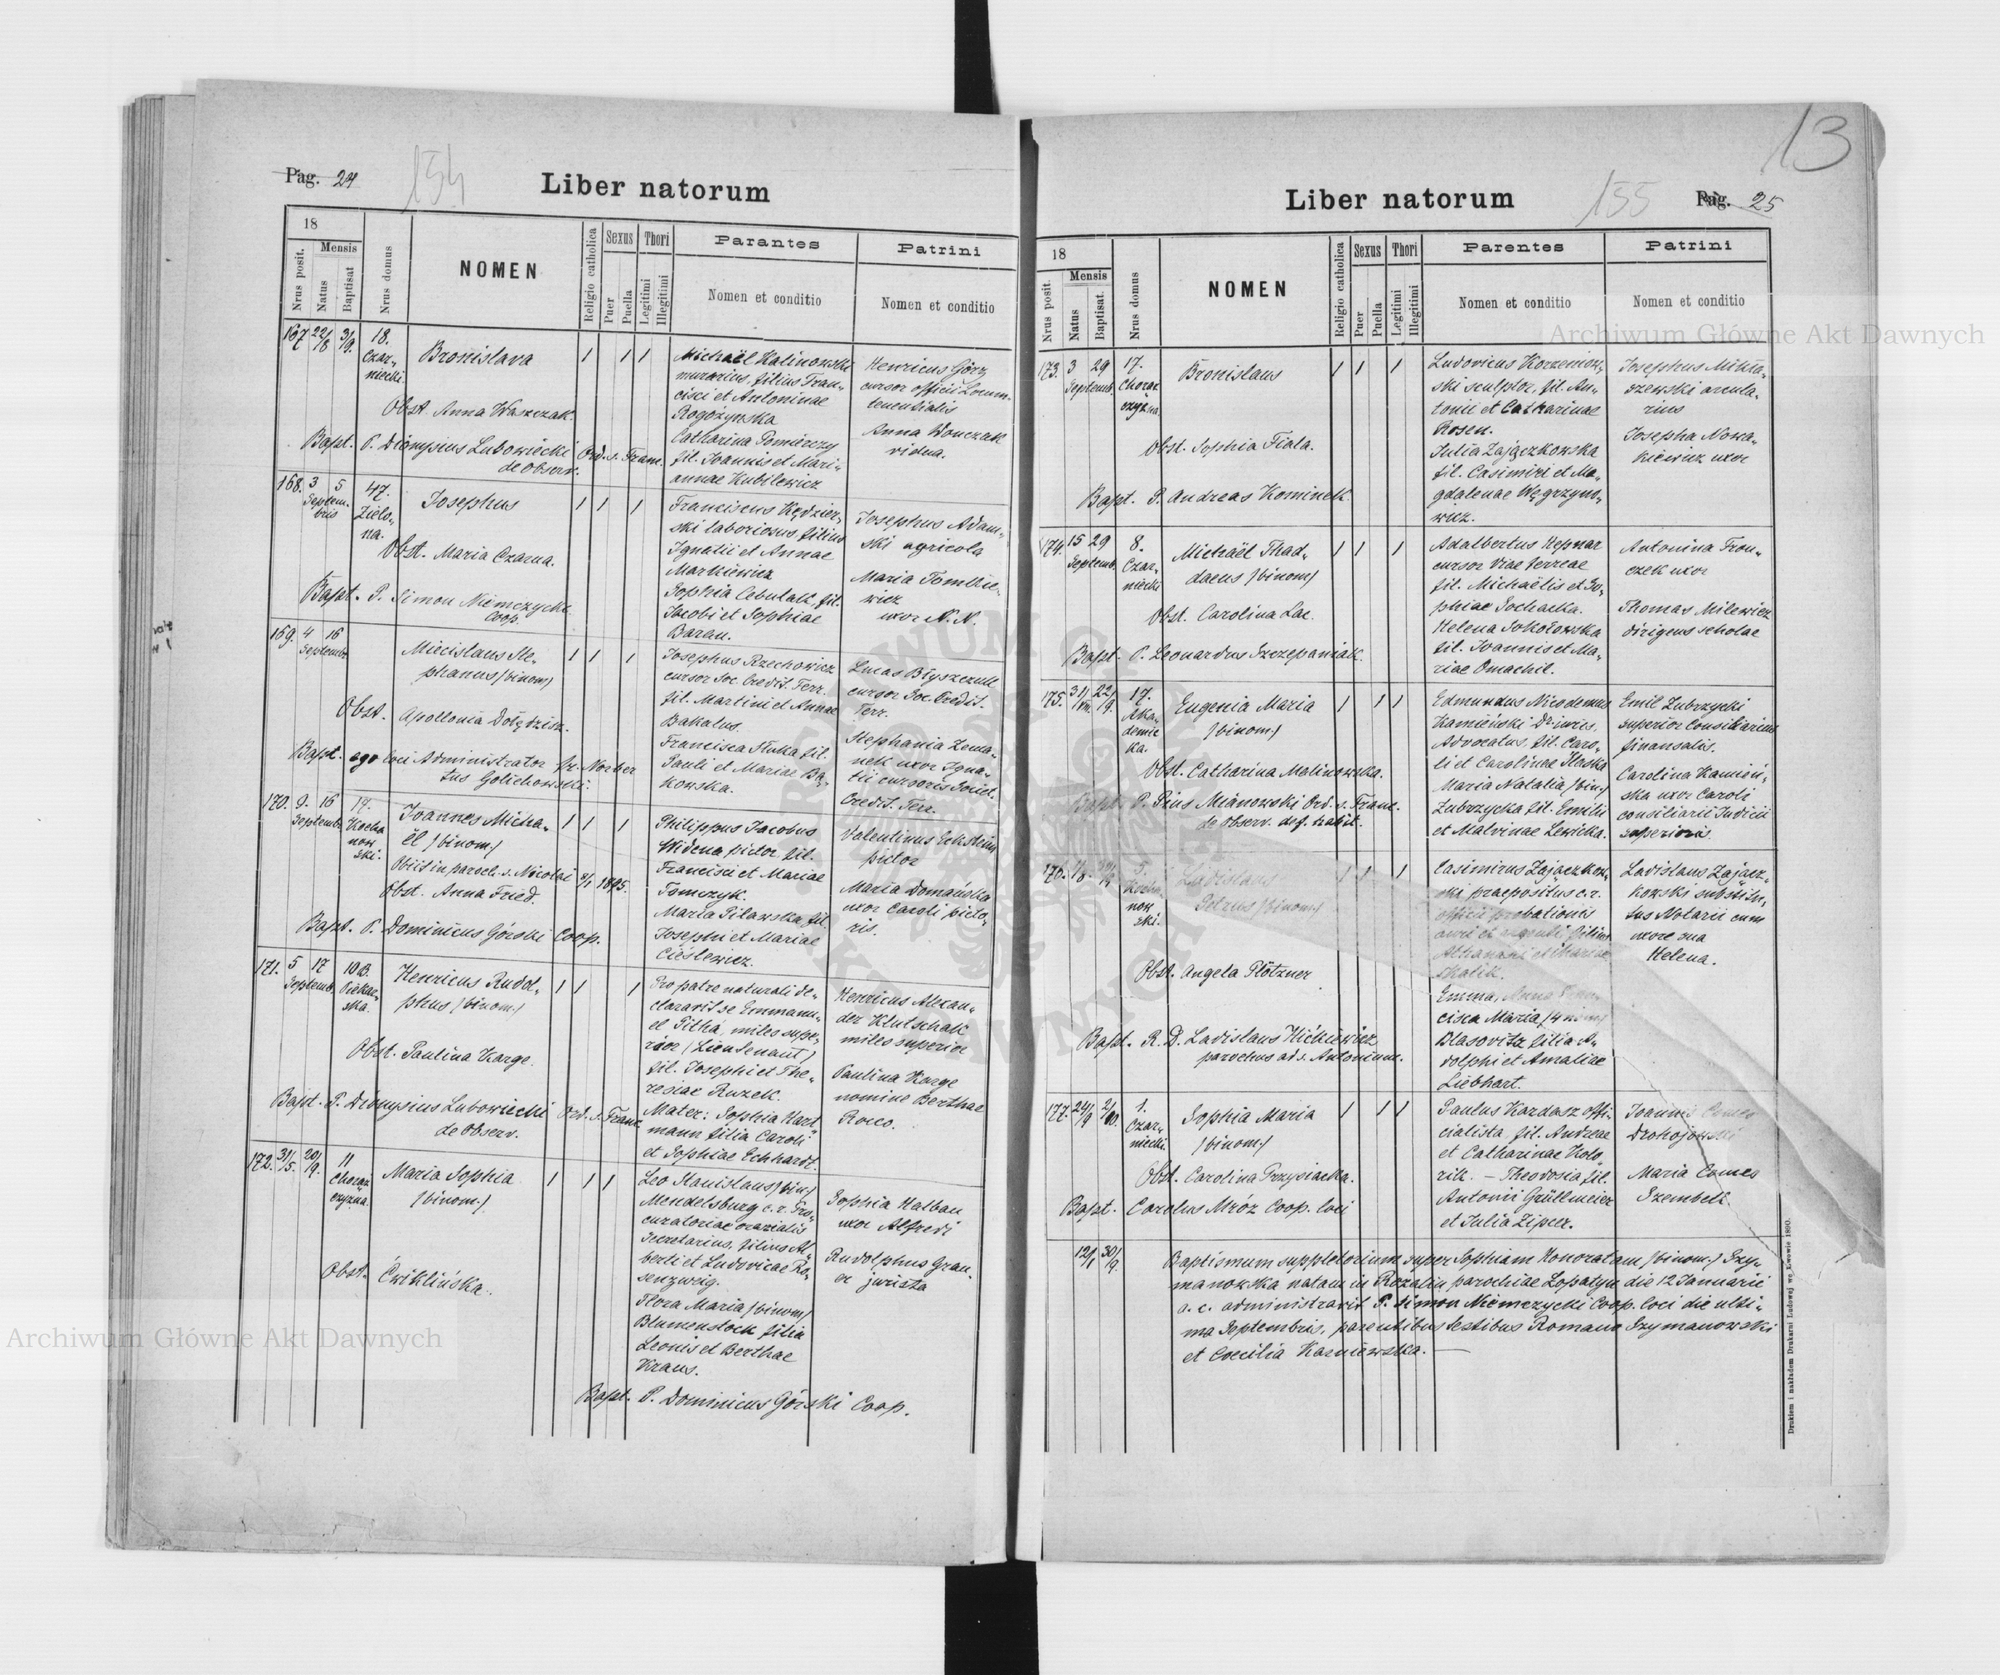 Pag. 24
154
Liber natorum
18
Mensis
Nrus posit.
Natus
Baptisat
Nrus domus
NOMEN
Religio catholica
Sexus
Puer
Puella
Thori
Legitimi
Illegitimi
Parantes
Nomen et conditio
Patrini
Nomen et conditio
167 22/8 3/9. 18.
Czar-
niecki
Bronislava
Obst. Anna Waszczak.
Bapt. P. Dionysius Lubowiecki Ord. s. Franc.
de Observ.
Michaël Kalinowski
murarius, filius Fran-
cisci et Antoninae
Rogożynska
Catharina Pomiérczy
fil. Joannis et Mari-
annae Kubilewicz
Henricus Görz
cursor officii Locum-
tenentialis
Anna Wonczak
vidua.
168. 3 5 47.
Septem-
bris
Zielo-
na.
Josephus
Obst. Maria Czarna.
Bapt. P. Simon Niemczycki
Coop.
Franciscus Kędzier-
ski laboriosus filius
Ignatii et Annae
Markiewicz
Sophia Cebulak, fil.
Jacobi et Sophiae
Baran.
Josephus Adam-
ski agricola
Maria Tomkie-
wicz
uxor N. N.
169. 4 16
Septembr
Miecislaus Ste-
phanus /binom/
Obst. Apollonia Dołędzisz.
Bapt. ego loci Administrator fr. Norber
tus Golichowski.
Josephus Rzechowicz
cursor Soc. Credit. Terr.
fil. Martini et Annae
Bakalus.
Francisca Słuka fil.
Pauli et Mariae Bą-
kowska.
Lucas Błyszczuk
cursor Soc. Credit.
Terr.
Stephania Zema-
nek uxor Igna-
tii cursoris Societ.
Credit. Terr.
170. 9. 16 19.
Septembr
Kocha
now
ski.
Joannes Micha-
ël /binom/
Obiit in paroch. s. Nicolai 8/1 1895.
Obst. Anna Fried.
Bapt. P. Dominicus Górski Coop.
Philippus Jacobus
Widena pictor fil.
Francisci et Mariae
Tomczyk.
Maria Pilawska fil.
Josephi et Mariae
Cieślewicz.
Valentinus Eckstein
pictor
Maria Domańska
uxor Caroli picto-
ris.
171. 5 17 10 B.
Septemb.
Piekar-
ska.
Henricus Rudol-
phus /binom./
Obst. Paulina Karge.
Bapt. P. Dionysius Lubowiecki Ord. s. Franc.
de Observ.
Pro patre naturali de-
claravit se Emmanu-
el Pitha, miles supe-
rior /Lieutenant/
fil. Josephi et The-
resiae Ruzek.
Mater: Sophia Hart-
mann filia Caroli
et Sophiae Echhardt.
Henricus Alexan-
der Klutschak
miles superior
Paulina Karge
nomine Berthae
Rocco.
172. 31/5. 20/9. 11
Chorąż
czyzna.
Maria Sophia
/binom./
Obst. Ćwiklińska.
Leo Stanislaus /bin./
Mendelsburg c. r. Pro-
curatoriae aerarialis
Secretarius, filius Al-
berti et Ludovicae Ro-
senzweig.
Flora Maria /binom/
Blumenstock filia
Leonis et Berthae
Kraus.
Sophia Halban
uxor Alfredi
Rudolphus Grau-
er jurista
Bapt. P. Dominicus Górski Coop.
13
Liber natorum
155
Pag. 25
18
Mensis
Nrus posit.
Natus
Baptisat.
Nrus domus
NOMEN
Religio catholica
Sexus
Puer
Puella
Thori
Legitimi
Illegitimi
Parentes
Nomen et conditio
Patrini
Nomen et conditio
173. 3 29 17.
Septemb.
Chorąż
czyzna
Bronislaus
Obst. Sophia Fiala.
Bapt. P. Andreas Kominek.
Ludovicus Korzeniow-
ski sculptor, fil. An-
tonii et Catharinae
Rosen.
Julia Zajączkowska
fil. Casimiri et Ma-
gdalenae Węgrzyno-
wicz.
Josephus Mikła-
szewski arcula-
rius
Josepha Nowa-
kiewicz uxor
174. 15 29 8.
Septemb.
Czar-
niecki
Michaël Thad-
daeus /binom/
Obst. Carolina Lac.
Bapt. P. Leonardus Szczepaniak.
Adalbertus Hepnar
cursor Viae ferreae
fil. Michaëlis et So-
phiae Sochacka.
Helena Sokołowska
fil. Joannis et Ma-
riae Omachil.
Antonina Fron-
czek uxor
Thomas Milewicz
dirigens scholae
175. 31/VIII. 22/9. 17.
Aka-
demic
ka.
Eugenia Maria
/binom./
Obst. Catharina Malinowska.
Bapt. P. Pius Mianowski Ord. s. Franc.
de Observ. def. habit.
Edmundus Nicodemus
Kamieński Dr. iuris.
Advocatus, fil. Caro-
li et Carolinae Płaska
Maria Natalia /bin./
Zubrzycka fil. Emilii
et Malvinae Lewicka.
Emil Zubrzycki
superior Consiliarius
finansalis.
Carolina Kamień-
ska uxor Caroli
consiliarii Iudicii
superioris.
176. 5.
Kocha
now
ski.
Ladislaus
Petrus /binom./
Obst. Angela Plötzner
Bapt. R. D. Ladislaus Hićkiewicz
parochus ad s. Antonium.
Casimirus Zajączkow-
ski praepositus c. r.
officii probationis
auri et argenti filius
Athanasii et Mariae
Skalik.
Emma, Anna Fran-
cisca Maria /4 nom/
Blasovitz filia A-
dolphi et Amaliae
Liebhart.
Ladislaus Zającz-
kowski substitu-
tus Notarii cum
uxore sua
Helena.
177. 24/9 2/00. 1.
Czar-
niecki.
Sophia Maria
/binom./
Obst. Carolina Przysiacka.
Bapt. Carolus Mróz Coop. loci
Paulus Kardasz offi-
cialista fil. Andreae
et Catharinae Kolo-
rik. — Theodosia fil.
Antonii Grüllmeier
et Julia Zipser.
Joannes Comes
Drohojowski
Maria Comes
Szembek.
12/1 30/9.
Baptismum suppletorium super Sophiam Honoratam /binom./ Szy-
manowska natam in Rozalin parochiae Lopatyn die 12 Januarii
a. c. administravit P. Simon Niemczycki Coop. loci die ulti-
ma Septembris, parentibus testibus Romano Szymanowski
et Coecilia Kasniewska. —
Drukiem i nakładem Drukarni Ludowej we Lwowie 1890.
Archiwum Główne Akt Dawnych
Archiwum Główne Akt Dawnych